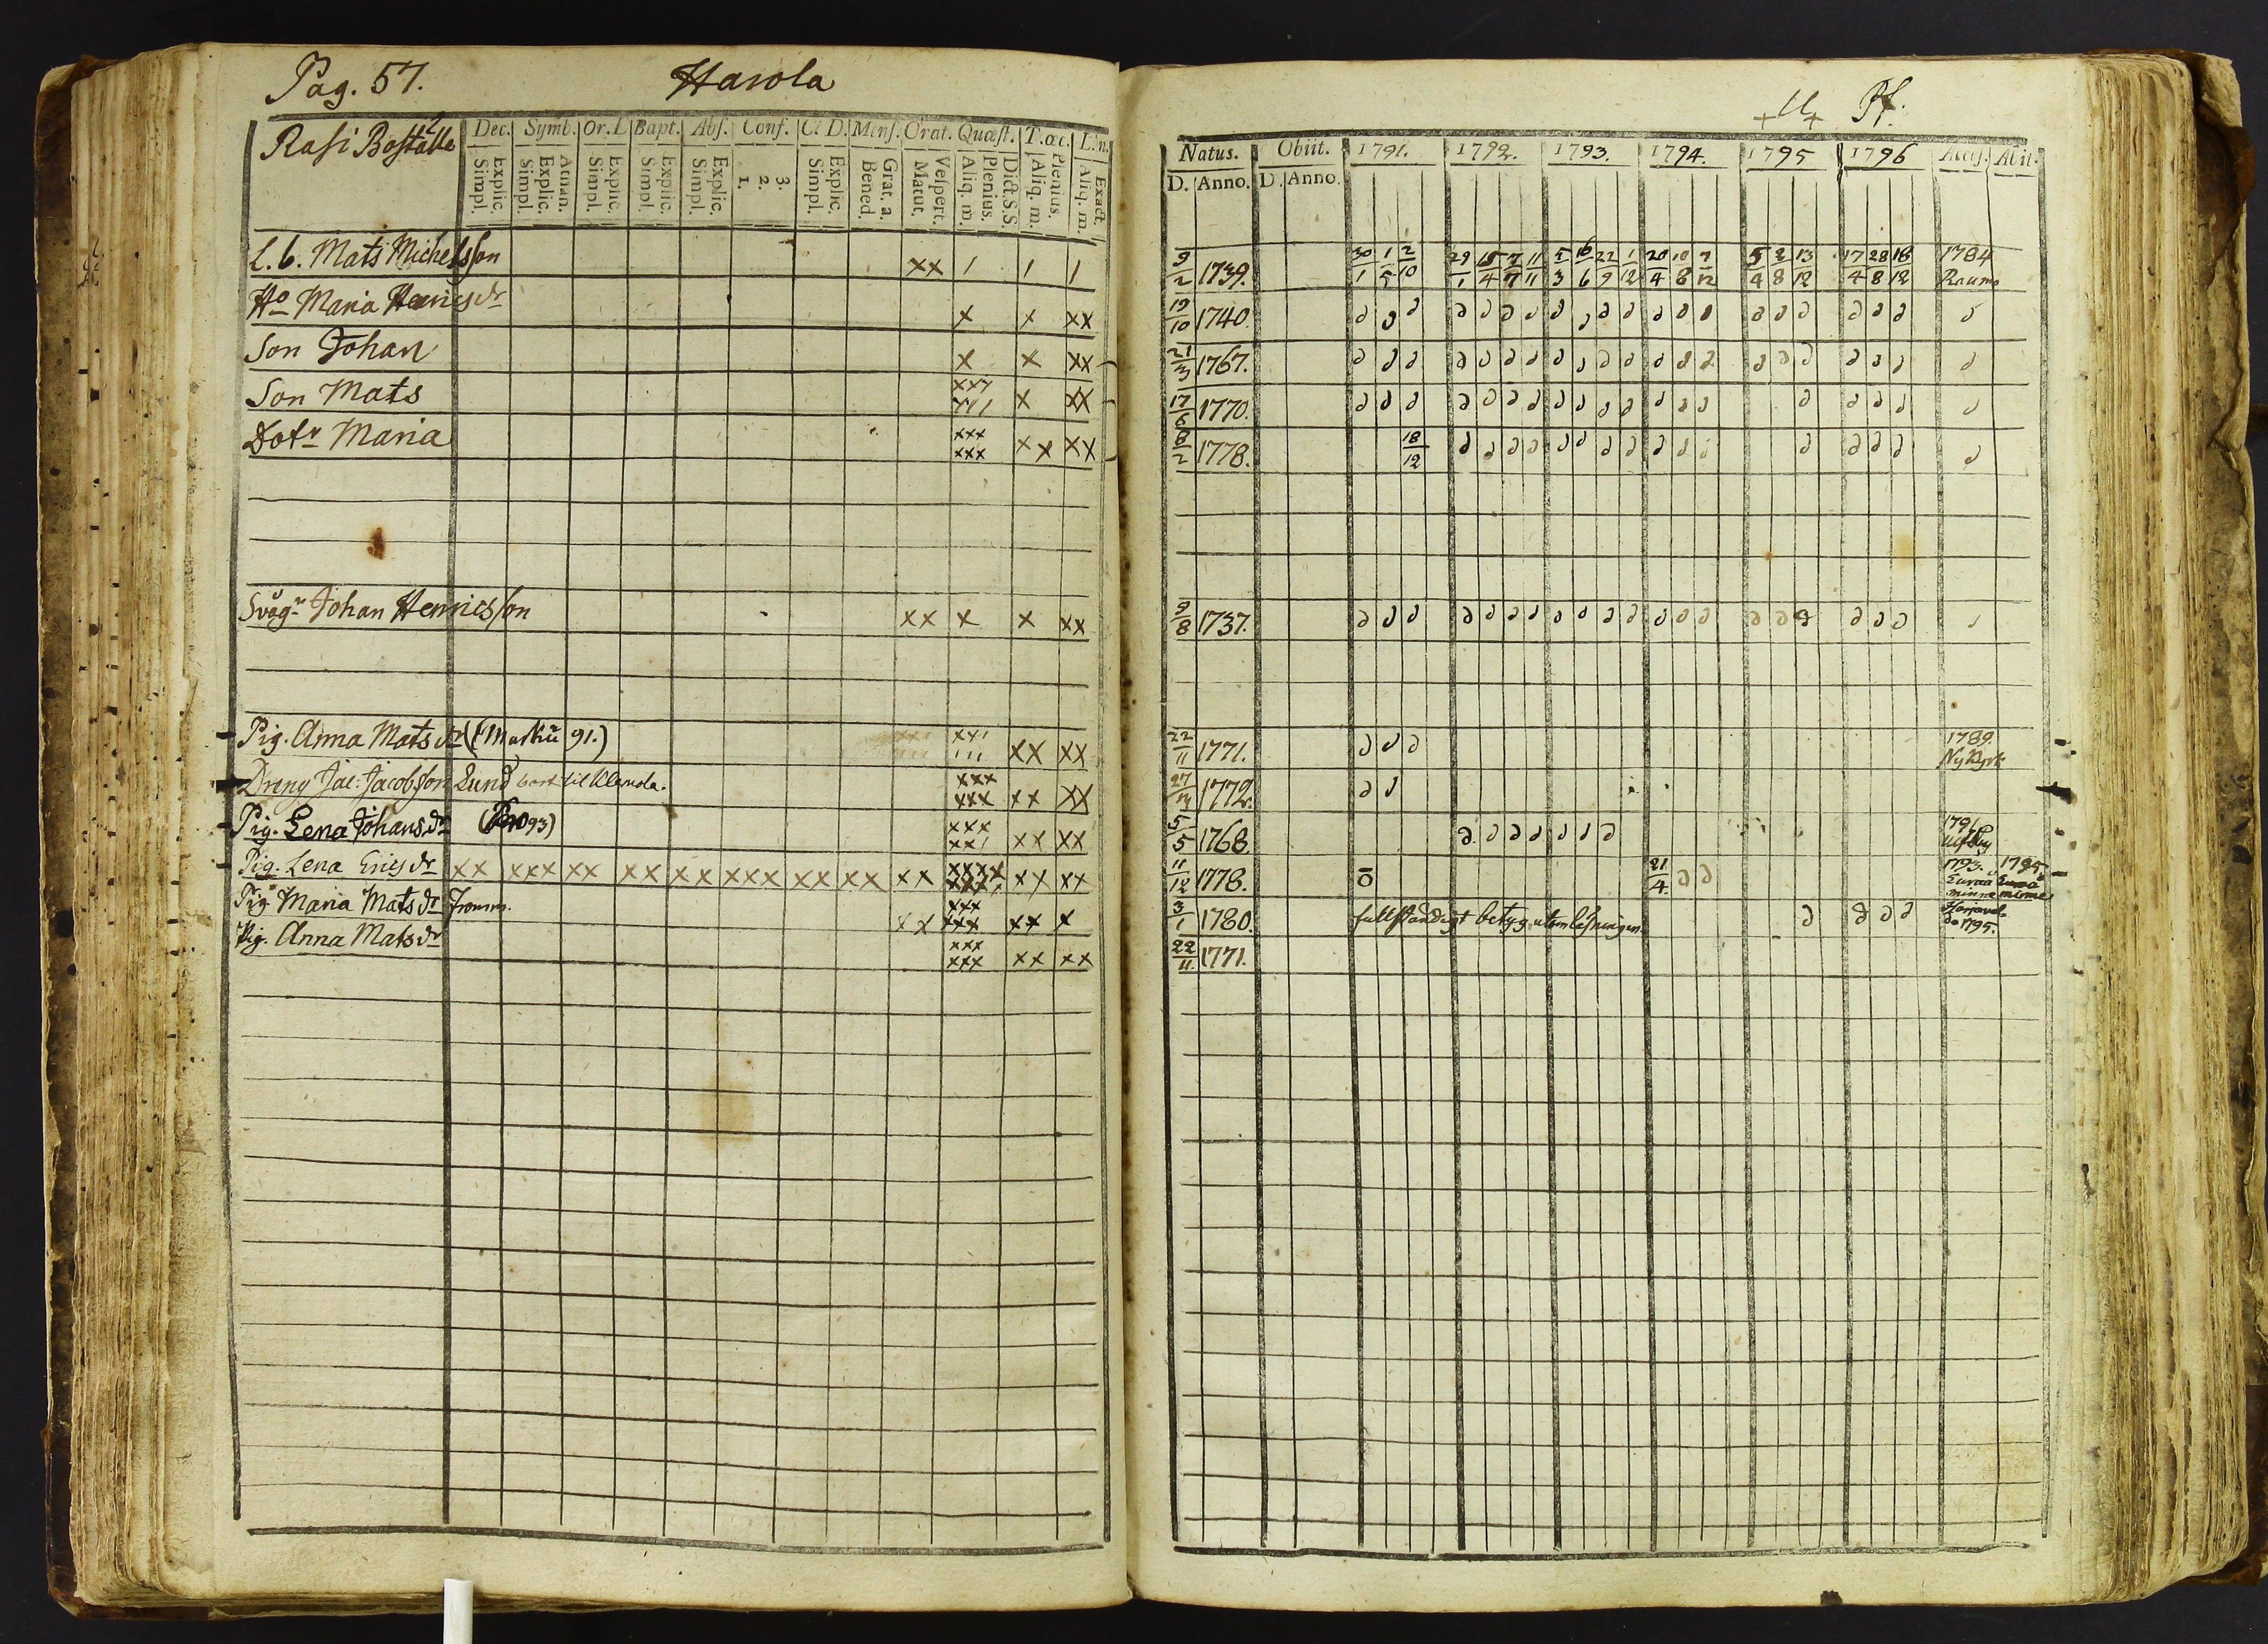 Pag. 57. Harola
Rasi Boställe
Dec. Symb. Or. L Bapt. Abs. Conf. C. D. Mens. Orat. Quæst. T. œc. L. n.
Explic. Simpl. Athan. Explic. Simpl. Explic. Simpl. Explic. Simpl. Explic. Simpl. 3. 2. 1. Explic. Simpl. Grat. a. Bened. Vespert. Matut. Dict. S.S. Plenius. Aliq. m. Plenius. Aliq. m. Exact. Aliq. m.
L. b. Mats Michelsson xx 1 1 1
Ho Maria Henricsdr x x xx
Son Johan x x xx
Son Mats x xx
Dotr Maria xxx xxx xx xx
Svågr Johan Henricsson xx x x xx
Pig. Anna Matsdr 91.) xx xx
Dreng Jac: Jacobsson Lund bort til xxx xxx xx xx
Pig. Lena Johansdr 93) xx xx
Pig. Lena Ericsdr xx xxx xx xx xx xxx xx xx xx xx xx
Pig Maria Matsdr xx xxx xxx xx x
Pig. Anna Matsdr xxx xxx xx xx
Natus. Obiit. 1791. 1792. 1793. 1794. 1795 1796 Acces. Abiit.
D. Anno. D. Anno.
9/2 1739. 30/1 1/5 2/10 29/1 15/4 7/7 11/11 5/3 16/6 22/9 1/12 20/4 10/8 7/12 5/4 2/8 13/12 17/4 28/8 18/12 1784 Raumo
19/10 1740.
21/3 1767.
17/6 1770.
8/2 1778. 18/12
9/8 1737.
22/11 1771. 1789. Nykyrk
1772.
5/5 1768. 1791
11/12 1778. 21/4 1793. 1795. Eura minne minne
3/1 1780. fullständigt betyg utom läsningen 1795.
22/11 1771.